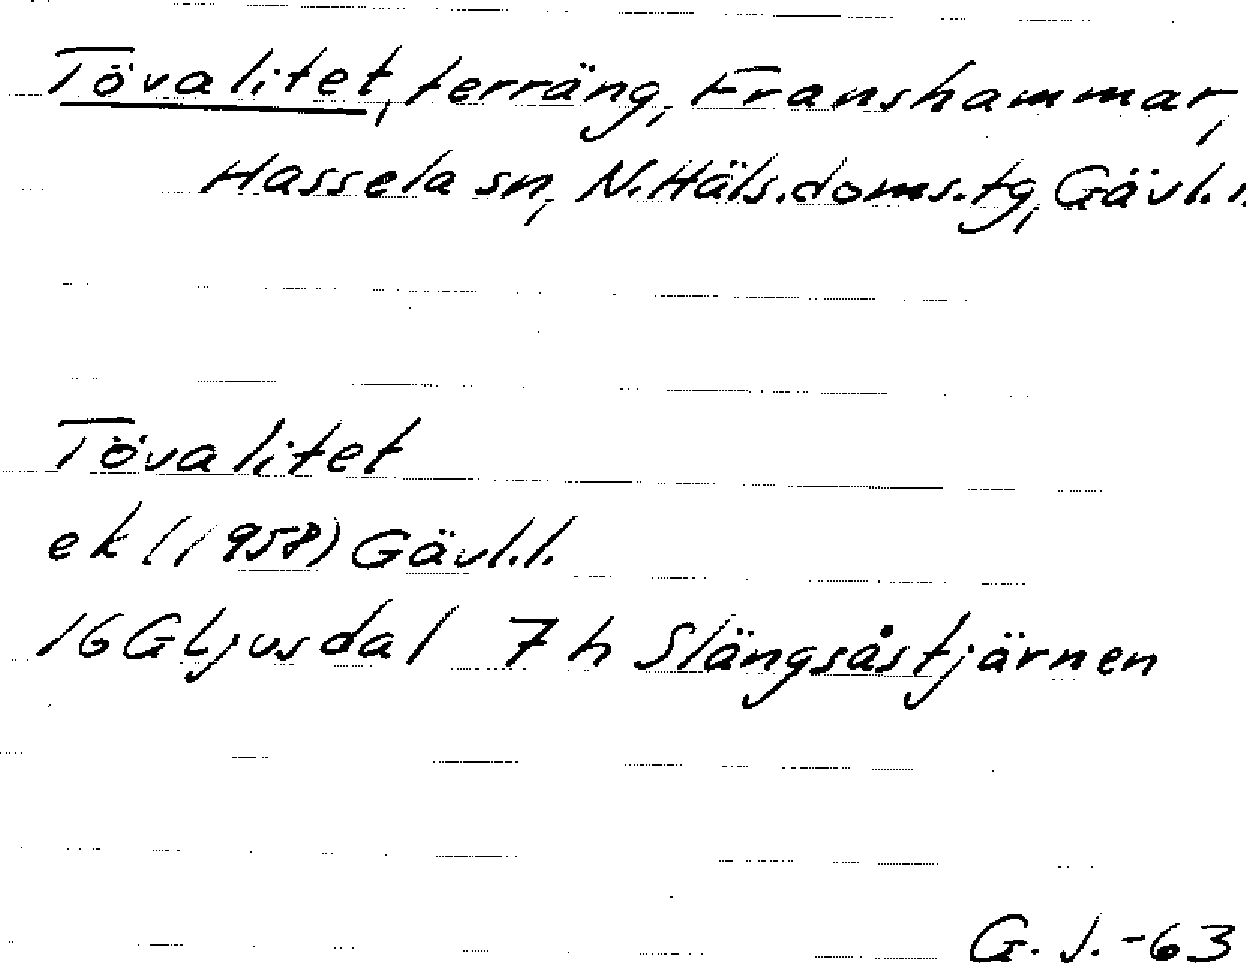 Tövalitet, terräng, Franshammar,
Hassela sn, N. Häls. doms. tg, Gävl.
Tövalitet
ek (1958) Gävl. l.
16G Ljusdal 7 h Slängsåstjärnen
G. J. -63